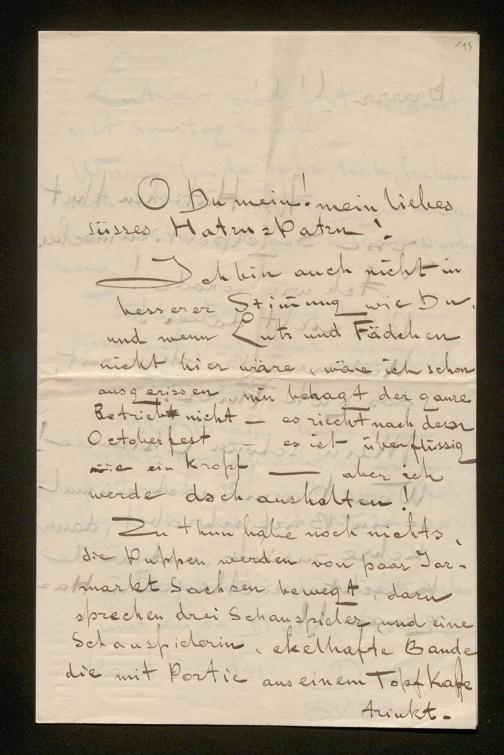 O Du mein! mein liebes
süsses Hatzu=Patzu!
Ich bin auch nicht in
besserer Stimung wie Du,
und wenn Lutz und Fädchen
nicht hier wäre, wäre ich schon
ausgerissen, mir behagt der ganze
Betrieb nicht — es riecht nach dem
Octoberfest — es ist überflüssig
wie ein Kropf — aber ich
werde doch aushalten!
Zu thun habe noch nichts,
die Puppen werden von paar Jar=
markt Sachsen bewegt, dazu
sprechen drei Schauspieler und eine
Schauspielerin, ekelhafte Bande
die mit Portie aus einem Topf Kafe
trinkt.